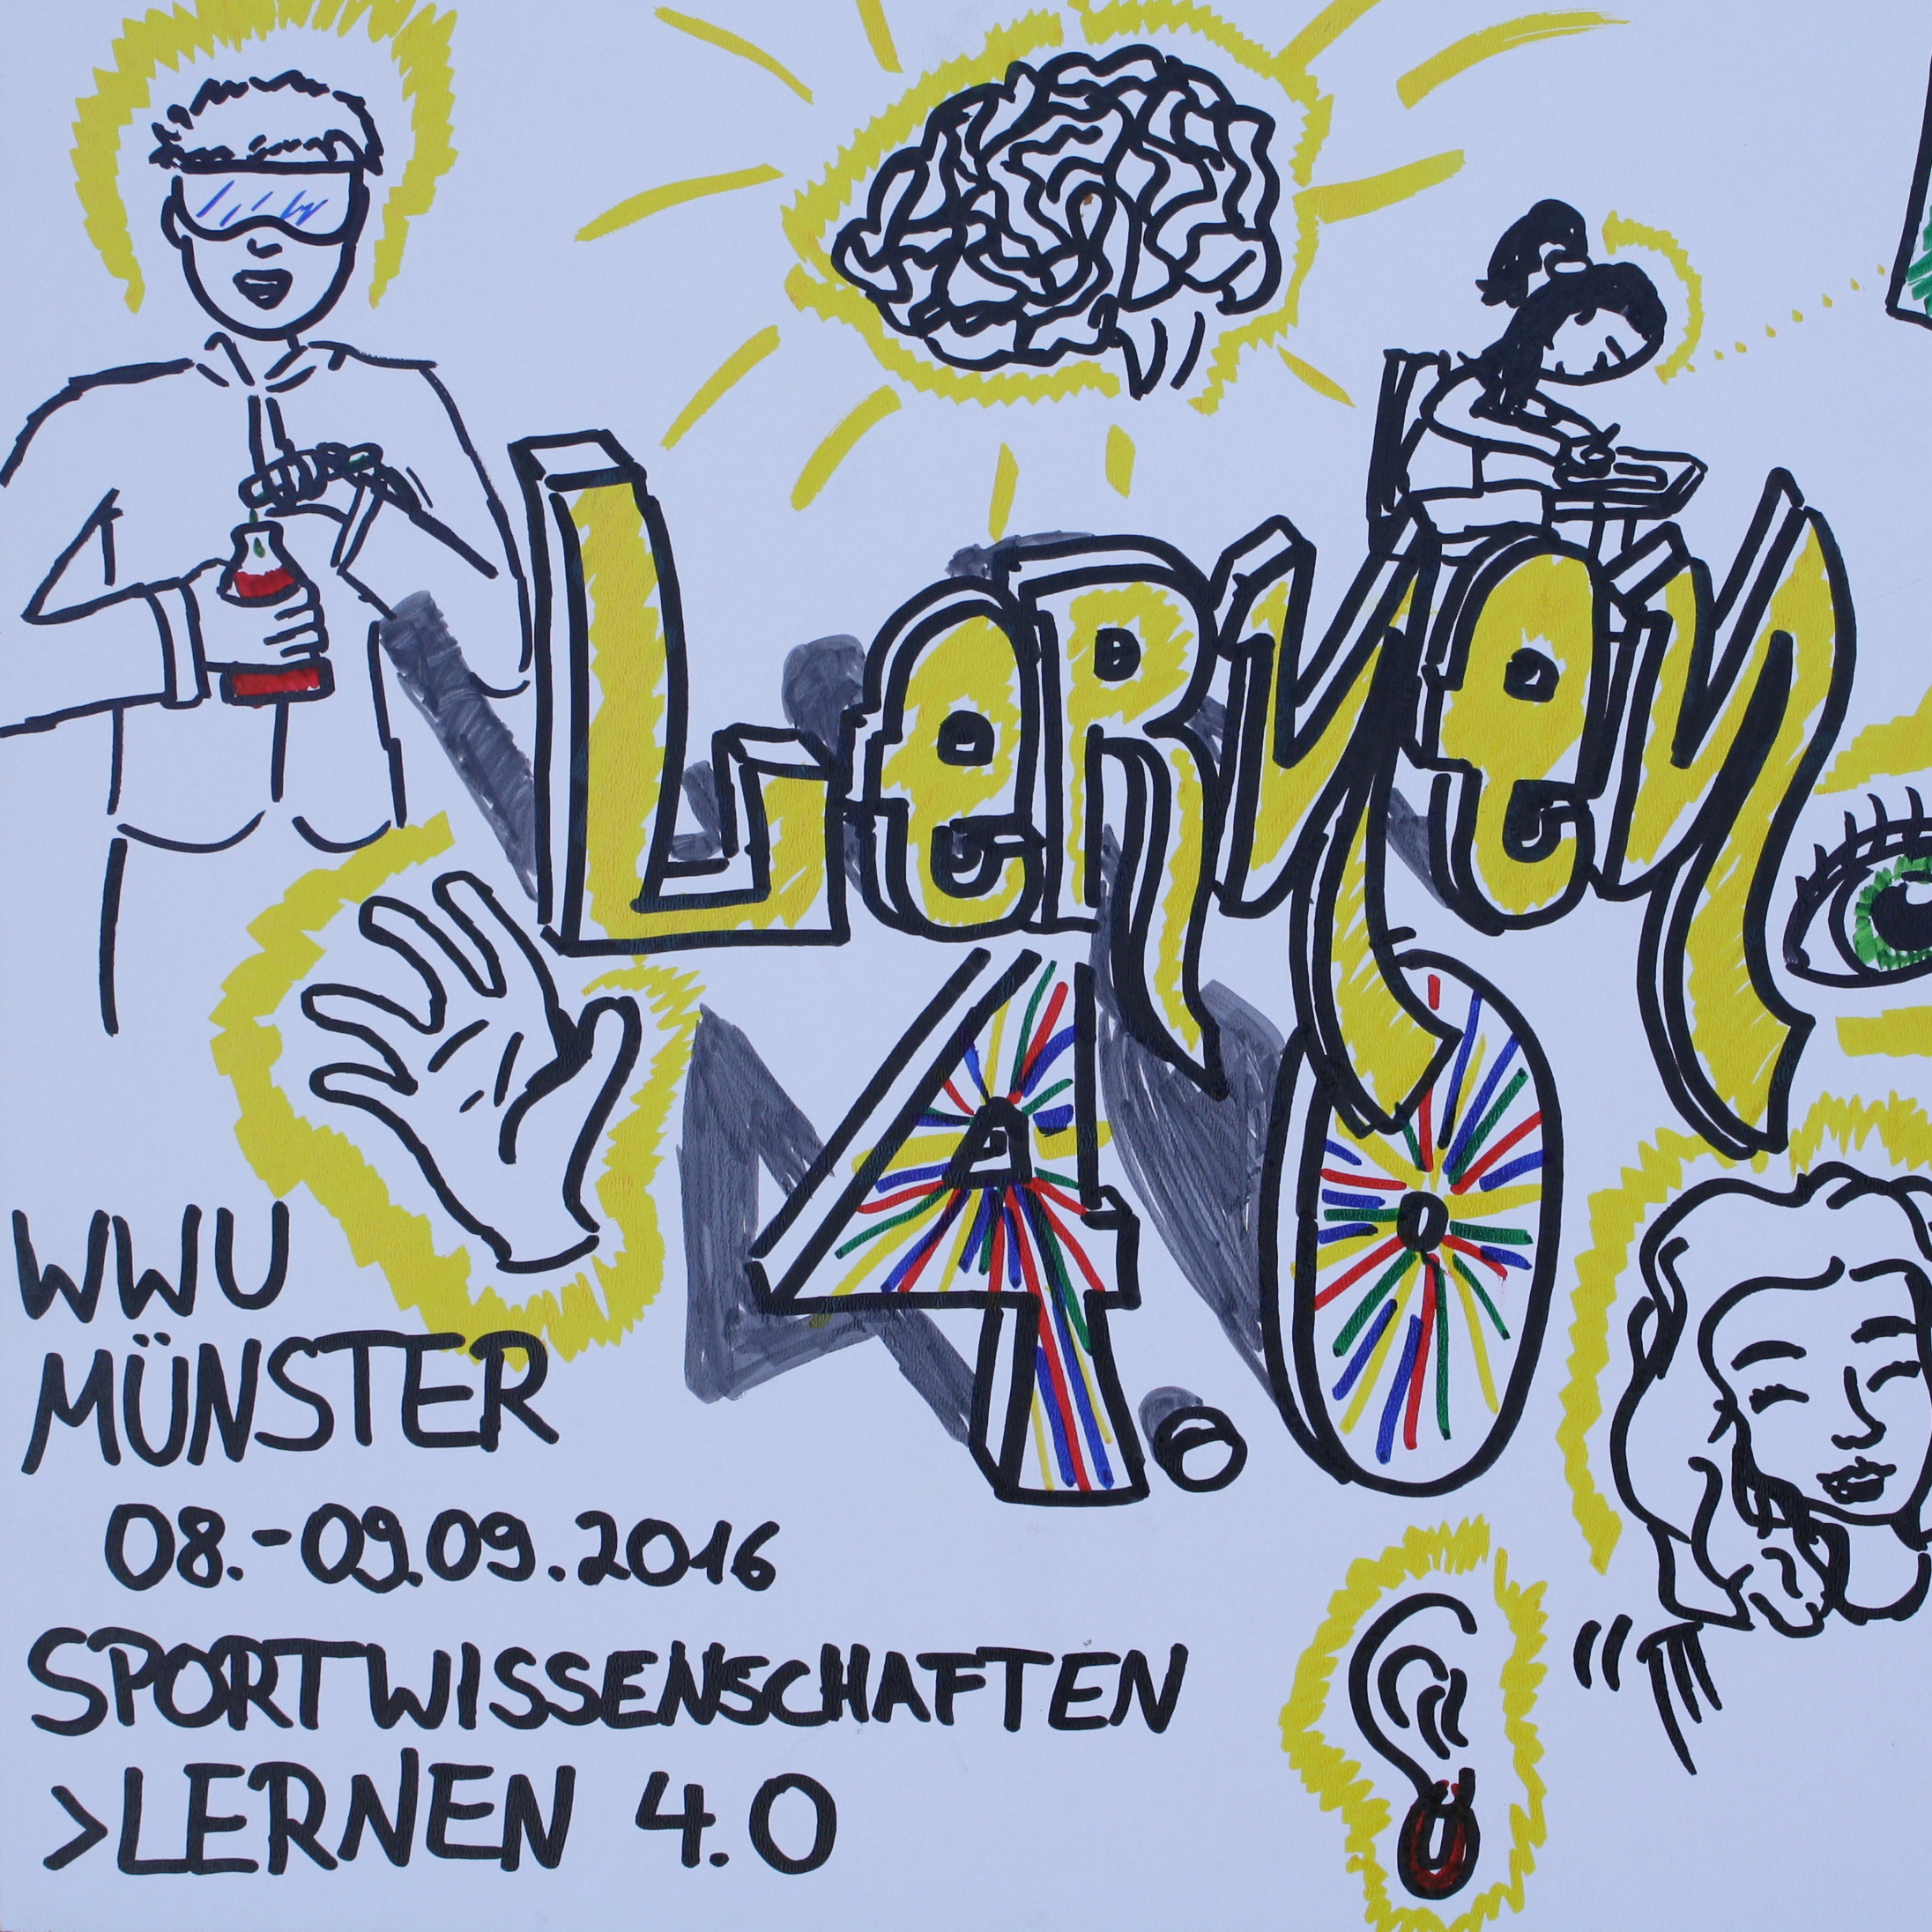 LeRNeN
4.0
WWU
MÜNSTER
08.-09.09.2016
SPORTWISSENSCHAFTEN
>LERNEN 4.0